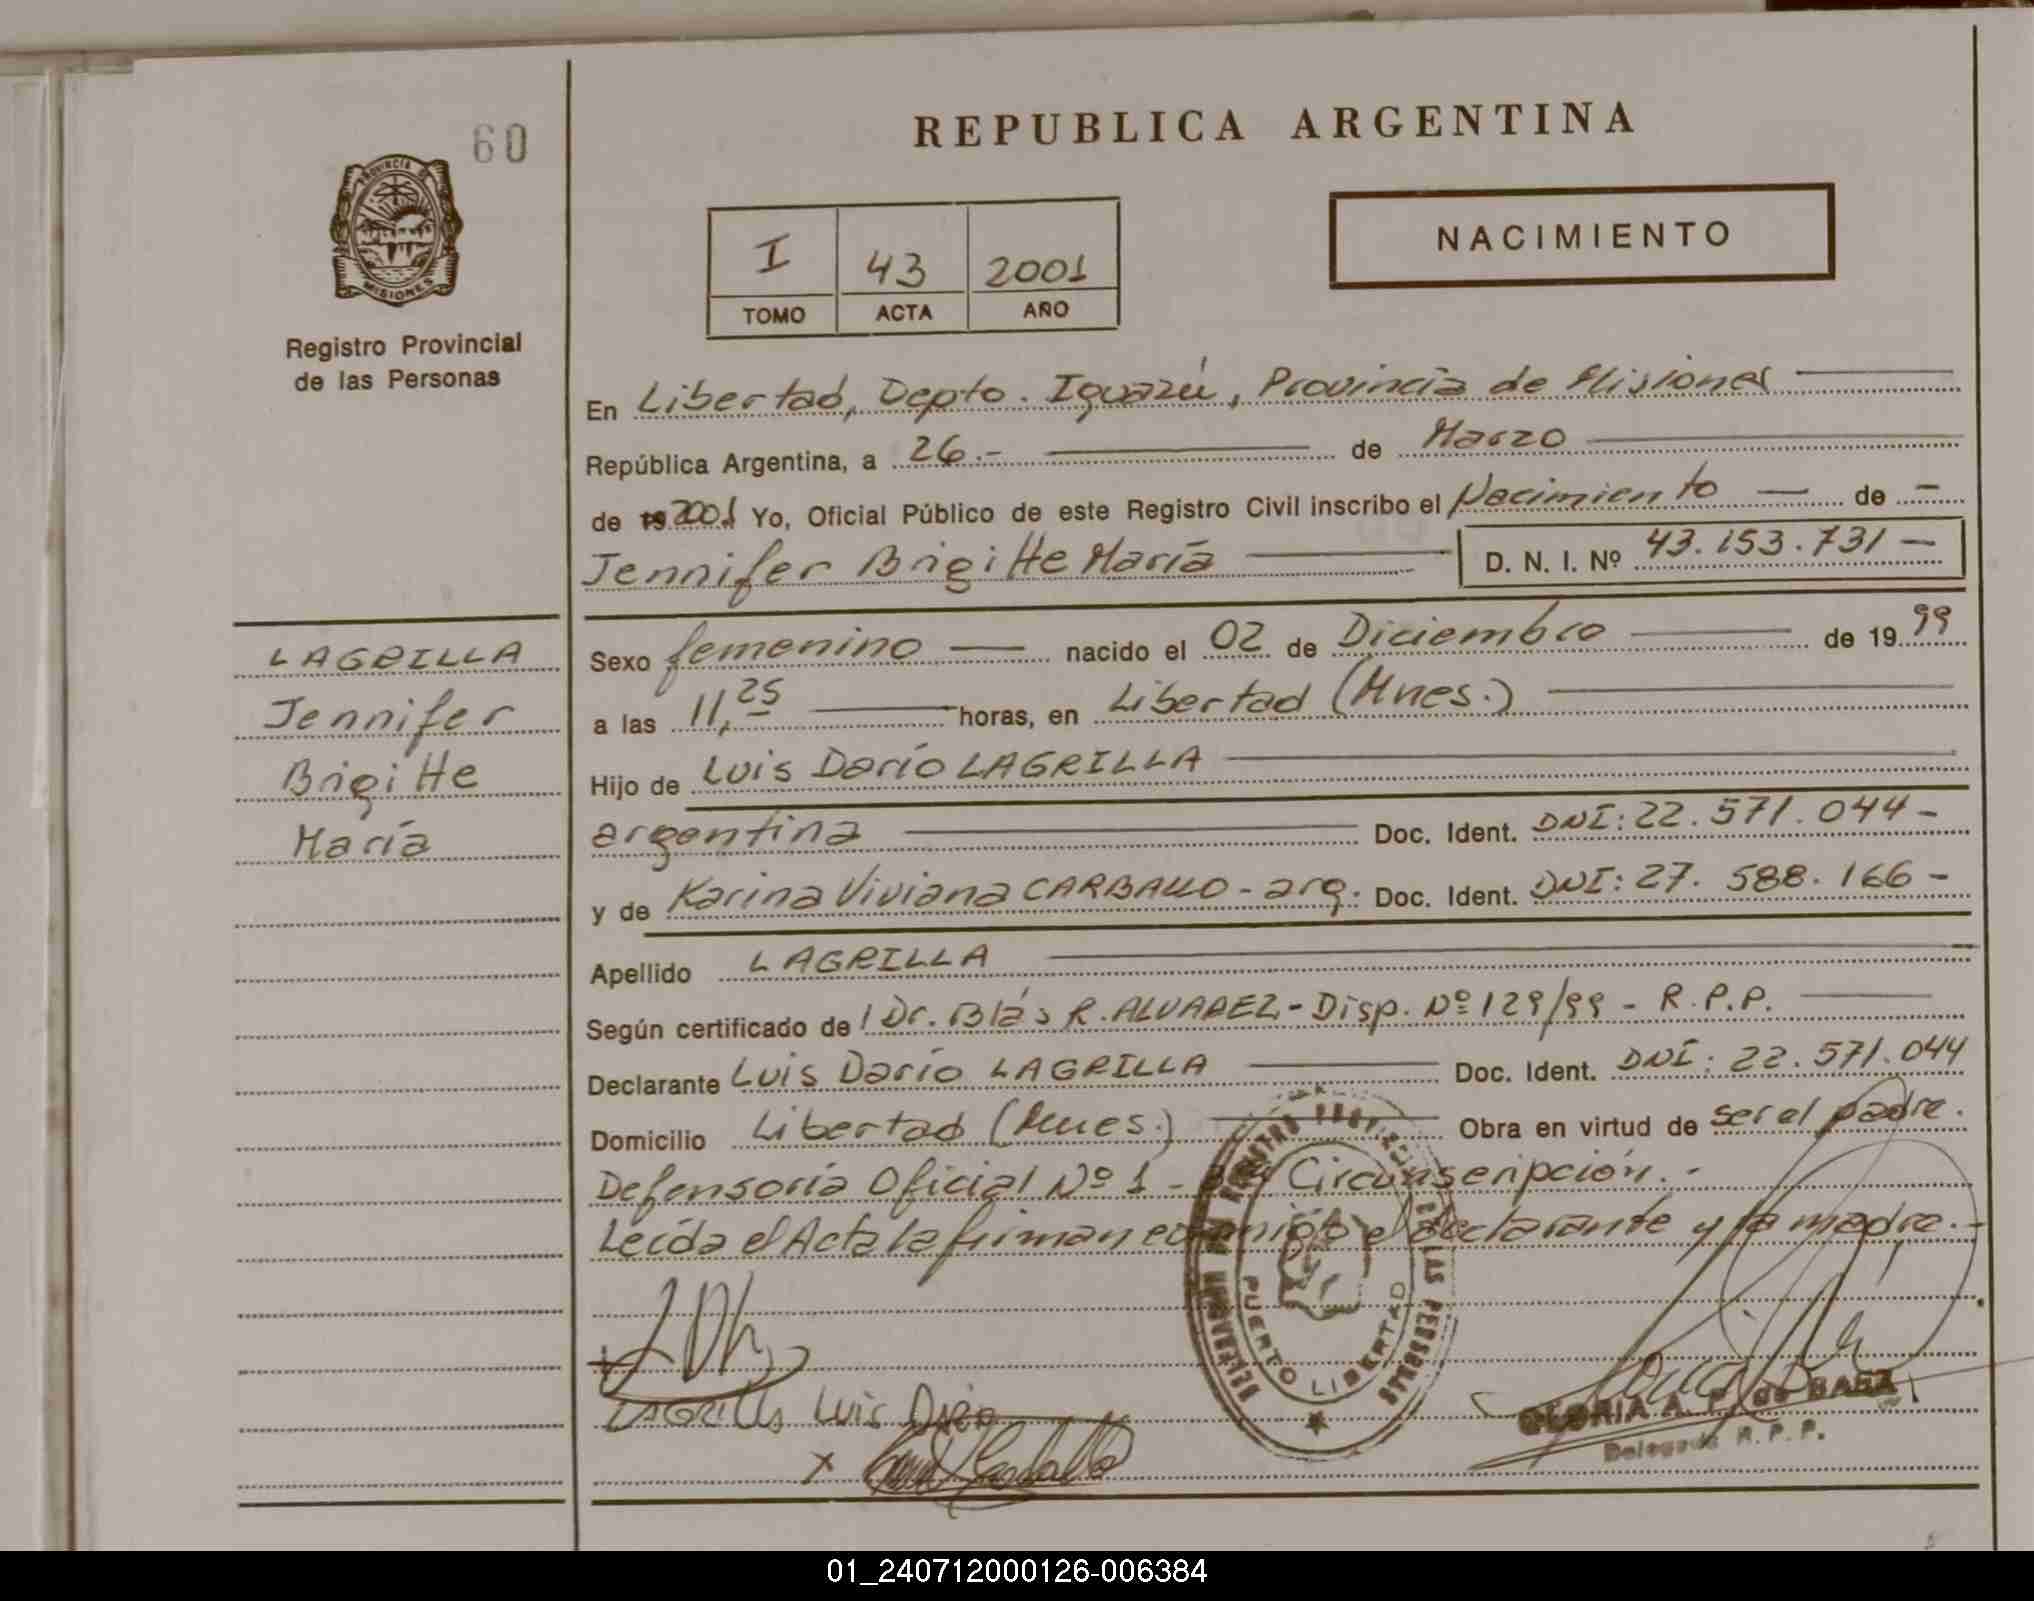 60
PROVINCIA DE
MISIONES
Registro Provincial
de las Personas
REPUBLICA ARGENTINA
I 43 2001
TOMO ACTA AÑO
NACIMIENTO
En Libertad, Depto. Iguazú, Provincia de Misiones
República Argentina, a 26.- de Marzo
de 19 2001 Yo, Oficial Público de este Registro Civil inscribo el Nacimiento — de -
Jennifer Brigitte María D. N. I. Nº 43.153.731 -
LAGRILLA
Jennifer
Brigitte
María
Sexo femenino — nacido el 02 de Diciembre de 19 99
a las 11,25 horas, en Libertad (Mnes.)
Hijo de Luis Darío LAGRILLA
argentina Doc. Ident. DNI: 22.571.044 -
y de Karina Viviana CARBALLO - arg. Doc. Ident. DNI: 27.588.166 -
Apellido LAGRILLA
Según certificado de Dr. Blás R. ALVAREZ - Disp. Nº 129/99 - R.P.P.
Declarante Luis Darío LAGRILLA Doc. Ident. DNI: 22.571.044
Domicilio Libertad (Mnes.) Obra en virtud de ser el padre.
Defensoría Oficial Nº 1 - Circunscripción.-
Leída el Acta la firman conmigo el declarante y la madre.-
PUERTO LIBERTAD
LAS PERSONAS
Lagrilla Luis Dario
x
GLORIA A. P. de BAEZ
Delegada R. P. P.
01_240712000126-006384